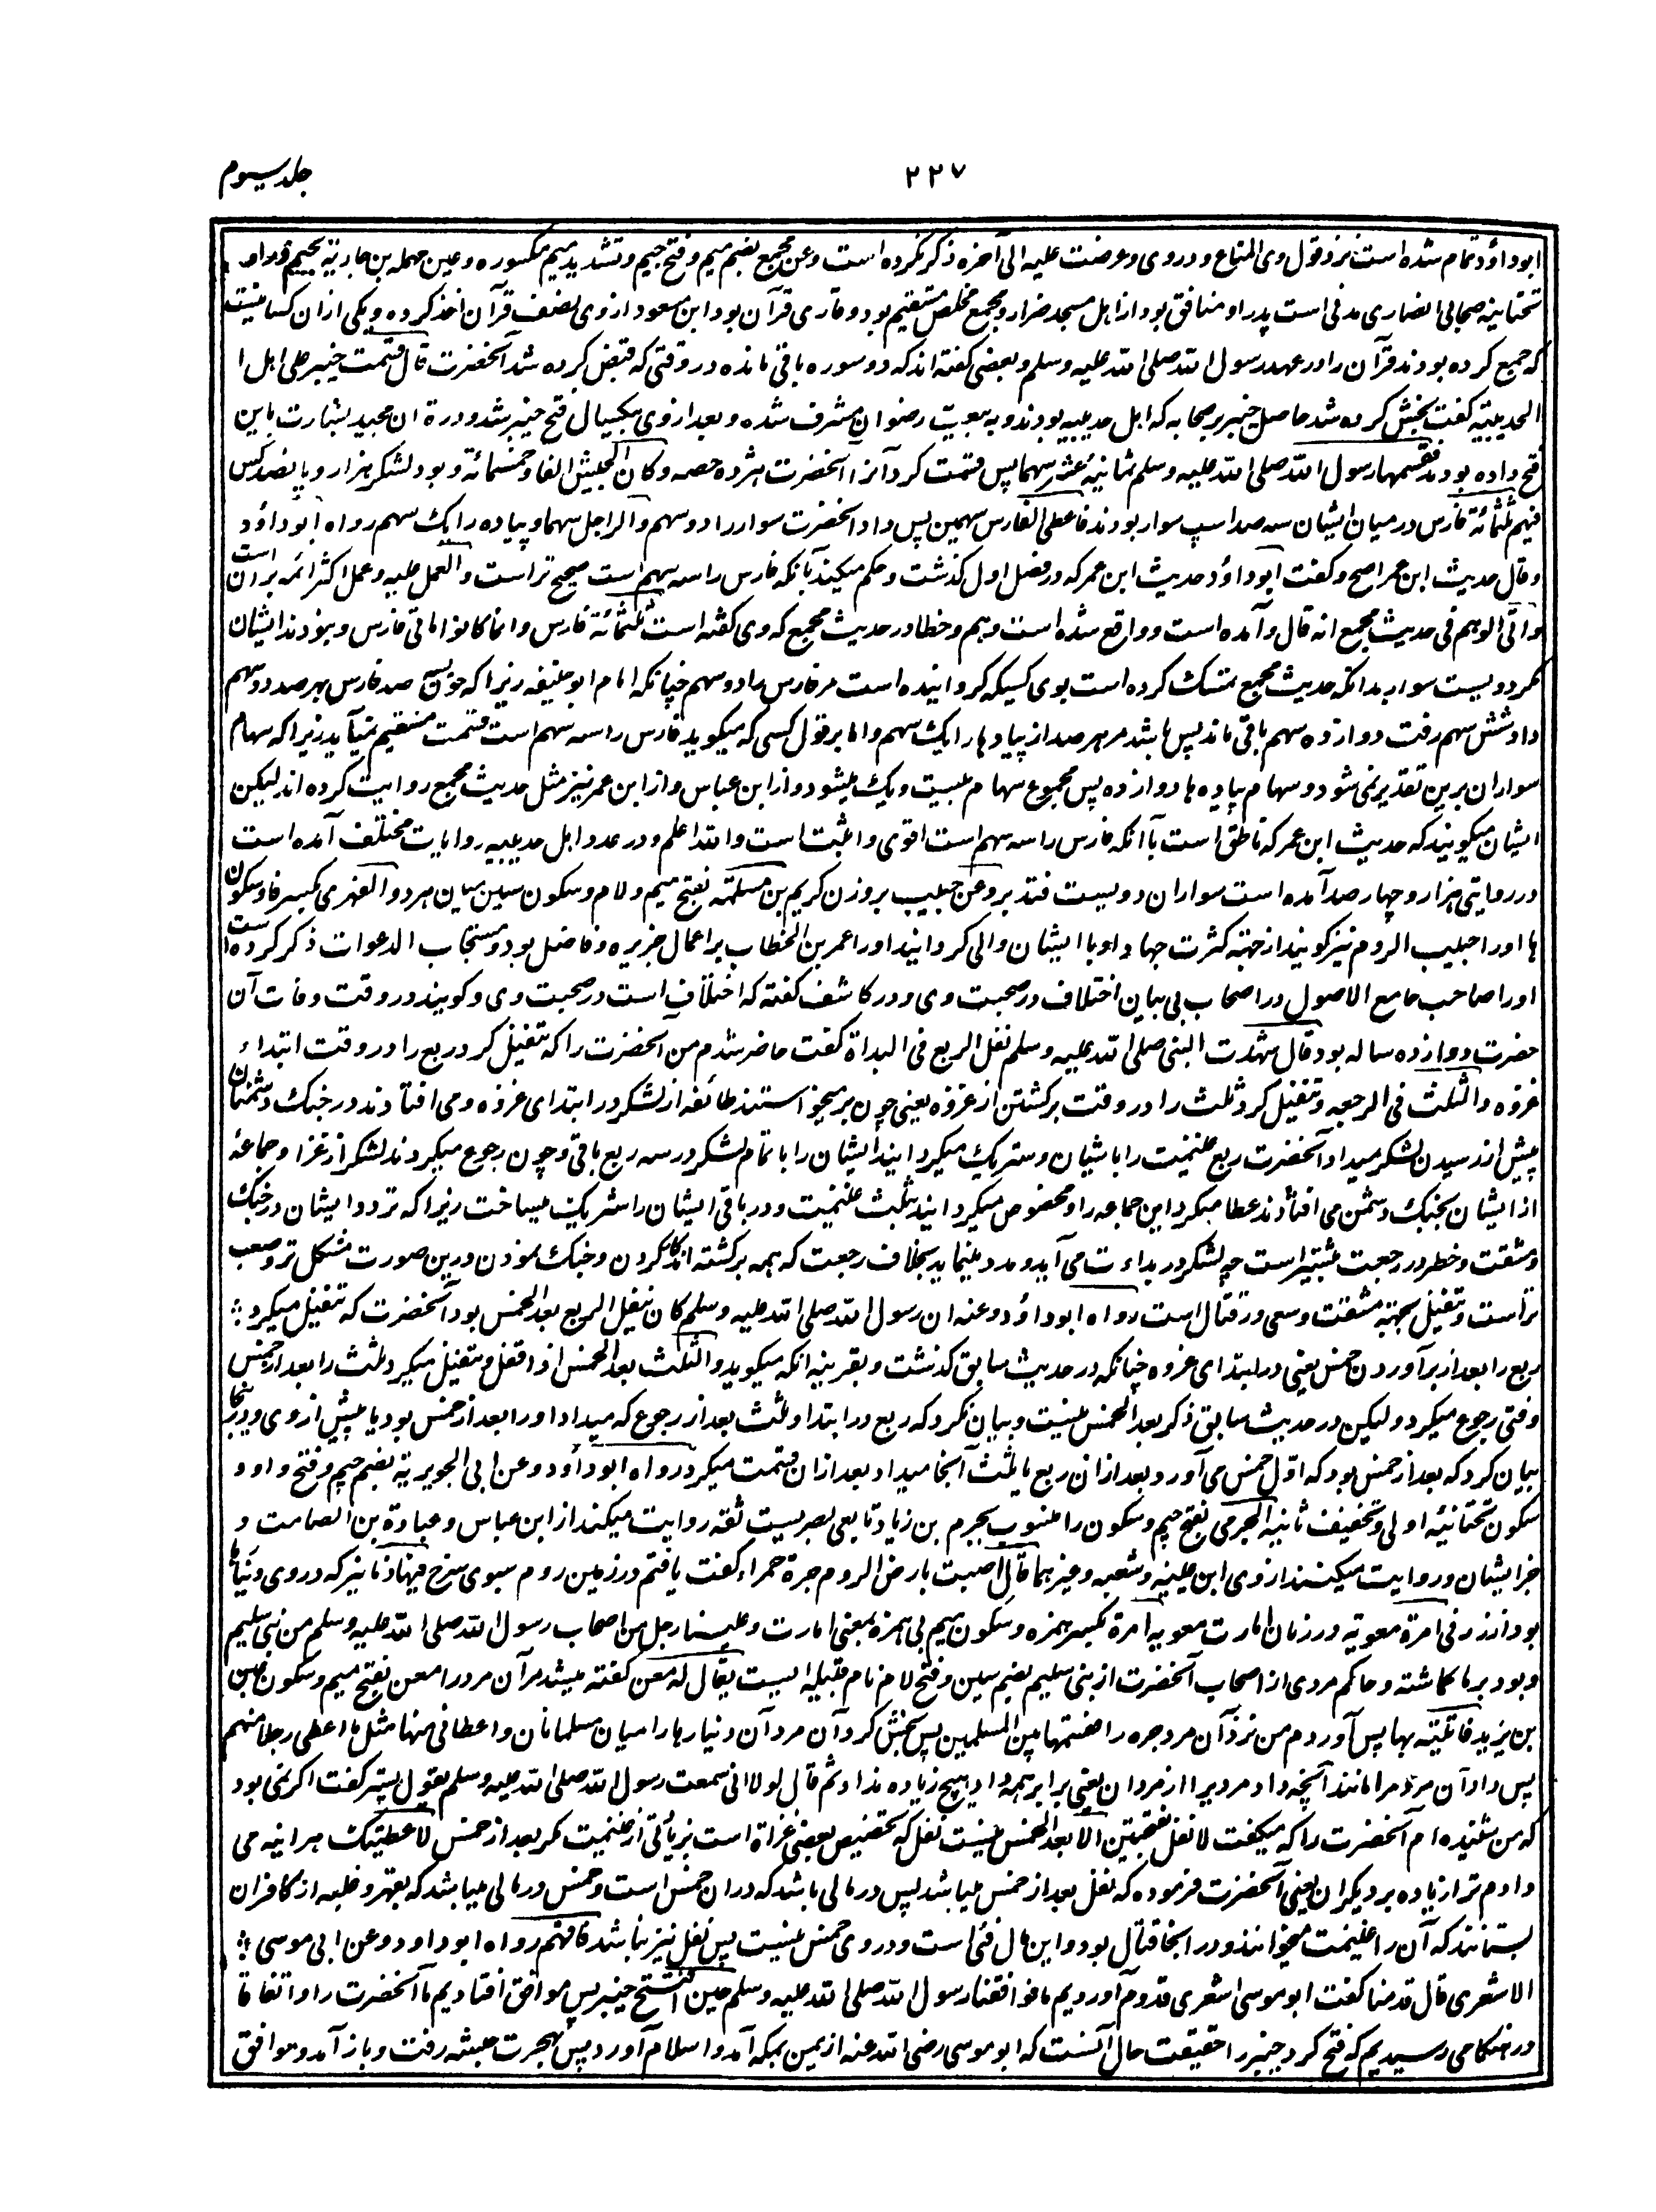 ۲۲۷
جلد سیوم
ابوداؤد تمام شده است نزد قول وی المتاع و دروی و عرضت علیه الی آخره ذکر نکرده است وعن مجمع بضم میم و فتح جیم و تشدید میم مکسوره و عین مهمله بن جاریة بجیم و را و
تحتانیه صحابی انصاری مدنی است پدر او منافق بود از اهل مسجد ضرار و مجمع مخلص مستقیم بود و قاری قرآن بود ابن مسعود از وی نصف قرآن اخذ کرده و یکی ازان کسانیست
که جمع کرده بودند قرآن را در عهد رسول الله صلی الله علیه وسلم و بعضی گفته اند که دو سوره باقی مانده در وقتی که قبض کرده شد آنحضرت قال قسمت خیبر علی اهل ا
الحدیبیة گفت بخش کرده شد حاصل خیبر بر صحابه که اهل حدیبیه بودند و به بیعت رضوان مشرف شده و بعد از وی بیکسال فتح خیبر شد و در قرآن مجید بشارت باین
فتح داده بودند فقسمها رسول الله صلی الله علیه وسلم ثمانیة عشر سهما پس قسمت کرد آنرا آنحضرت هژده حصه و کان الجیش الفا و خمسمائة و بود لشکر هزار و پانصد کس
فیهم ثلثمائة فارس در میان ایشان سه صد اسپ سوار بودند فاعطی الفارس سهمین پس داد آنحضرت سوار را دو سهم والراجل سهما و پیاده را یک سهم رواه ابوداؤد
وقال حدیث ابن عمر اصح و گفت ابوداؤد حدیث ابن عمر که در فصل اول گذشت و حکم میکند بآنکه فارس را سه سهم است صحیح تر است والعمل علیه و عمل اکثر ائمه بران است
واتی الوهم فی حدیث مجمع انه قال و آمده است و واقع شده است وهم و خطا در حدیث مجمع که وی گفته است ثلثمائة فارس وانما کانوا مائتی فارس و نبودند ایشان
مگر دویست سوار بدانکه حدیث مجمع تمسک کرده است بوی کسیکه گردانیده است مر فارس را دو سهم چنانکه امام ابو حنیفه زیرا که چون سی صد فارس بهر صد دو سهم
داد شش سهم رفت دوازده سهم باقی ماند پس باشد مر هر صد از پیادها را یک سهم و اما بر قول کسی که میگوید فارس را سه سهم است قسمت مستقیم نمی آید زیرا که سهام
سواران برین تقدیر نه می شود و سهام پیاده ها دوازده پس مجموع سهام بیست و یک میشود و از ابن عباس و از ابن عمر نیز مثل حدیث مجمع روایت کرده اند لیکن
ایشان میگویند که حدیث ابن عمر که ناطق است بآنکه فارس را سه سهم است اقوی و اثبت است والله اعلم و در عدد اهل حدیبیه روایات مختلف آمده است
در روایتی هزار و چهار صد آمده است سواران دویست فتدبر وعن حبیب بر وزن کریم بن مسلمة بفتح میم و لام و سکون سین میان هر دو الفهری بکسر فا و سکون
ها او را حبیب الروم نیز گویند از جهة کثرت جهاد او با ایشان والی گردانید او را عمر بن الخطاب بر اعمال جزیره و فاضل بود و مستجاب الدعوات ذکر کرده است
او را صاحب جامع الاصول در اصحاب بی بیان اختلاف در صحبت وی و در کاشف گفته که اختلاف است در صحبت وی و گویند در وقت وفات آن
حضرت دوازده ساله بود قال شهدت النبی صلی الله علیه وسلم نفل الربع فی البداة گفت حاضر شدم من آنحضرت را که تنفیل کرد ربع را در وقت ابتداء
غزوه والثلث فی الرجعه و تنفیل کرد ثلث را در وقت برگشتن از غزوه یعنی چون برمیخواستند طائفه از لشکر در ابتدای غزوه و می افتادند در جنگ دشمنان
پیش از رسیدن لشکر میداد آنحضرت ربع غنیمت را بایشان و شریک میگردانید ایشان را با تمام لشکر در سه ربع باقی و چون رجوع میکردند لشکر از غزا و جماعهٔ
از ایشان بجنگ دشمن می افتادند عطا میکرد این جماعه را و مخصوص میگردانید بثلث غنیمت و در باقی ایشان را شریک میساخت زیرا که تردد ایشان در جنگ
و مشقت و خطر در رجعت بیشتر است چه لشکر در بداءت می آید و مدد مینماید بخلاف رجعت که همه برگشته اند کار کردن و جنگ نمودن درین صورت مشکل تر و صعب
تر است و تنفیل بجهة مشقت و سعی در قتال است رواه ابوداؤد وعنه ان رسول الله صلی الله علیه وسلم کان ینفل الربع بعد الخمس بود آنحضرت که تنفیل میکرد ؛
ربع را بعد از برآوردن خمس یعنی در ابتدای غزوه چنانکه در حدیث سابق گذشت و بقرینه آنکه میگوید والثلث بعد الخمس اذا قفل و تنفیل میکرد ثلث را بعد از خمس
وقتی رجوع میکرد و لیکن در حدیث سابق ذکر بعد الخمس نیست و بیان نکرد که ربع در ابتدا و ثلث بعد از رجوع که میداد او را بعد از خمس بود یا پیش از وی و درینجا
بیان کرد که بعد از خمس بود که اول خمس می آورد و بعد ازان ربع یا ثلث آنجا میداد بعد ازان قسمت میکرد رواه ابوداؤد وعن ابی الجویریة بضم جیم و فتح واو و
سکون تحتانیه اولی و تخفیف ثانیه الجرمی بفتح جیم و سکون را منسوب بجرم بن زیاد تابعی بصریست ثقه روایت میکند از ابن عباس و عبادة بن الصامت و
جز ایشان و روایت میکنند از وی ابن عیینه و شعبه و غیرهما قال اصبت بارض الروم جرة حمراء گفت یافتم در زمین روم سبوی سرخ فیها دنانیر که در وی دینارها
بود از زر فی امرة معویة در زمان امارت معویه امرة بکسر همزه و سکون میم بی همزه بمعنی امارت وعلینا رجل من اصحاب رسول الله صلی الله علیه وسلم من بنی سلیم
و بود بر ما گماشته و حاکم مردی از اصحاب آنحضرت از بنی سلیم بضم سین و فتح لام نام قبیله ایست یقال له معن گفته میشد مر آن مرد را معن بفتح میم و سکون عین
بن یزید فاتیته بها پس آوردم من نزد آن مرد جره را فقسمها بین المسلمین پس بخش کرد آن مرد آن دینارها را میان مسلمانان واعطانی منها مثل ما اعطی رجلا منهم
پس داد آن مرد مرا مانند آنچه داد مردیرا از مردان یعنی برابر همه داد هیچ زیاده نداد ثم قال لولا انی سمعت رسول الله صلی الله علیه وسلم یقول پستر گفت اگر نمی بود
که من شنیده ام آنحضرت را که میگفت لا نفل بفتحتین الا بعد الخمس نیست نفل که تخصیص بعضی غزاة است بزیادتی از غنیمت مگر بعد از خمس لاعطیتک هر اینه می
دادم ترا زیاده بر دیگران یعنی آنحضرت فرموده که نفل بعد از خمس میباشد پس در مالی باشد که دران خمس است و خمس در مالی میباشد که بقهر و غلبه از کافران
بستانند که آن را غنیمت میخوانند و در اینجا قتال نبود و این مال فئ است و در وی خمس نیست پس نفل نیز نباشد فافهم رواه ابوداود وعن ابی موسی ؛
الاشعری قال قدمنا گفت ابوموسی اشعری قدوم آوردیم ما فوافقنا رسول الله صلی الله علیه وسلم حین افتتح خیبر پس موافق افتادیم ما آنحضرت را و اتفاقا
در هنگامی رسیدیم که فتح کرد خیبر را حقیقت حال آنست که ابوموسی رضی الله عنه از یمن بمکه آمد و اسلام آورد پس هجرت حبشه رفت و باز آمد و موافق